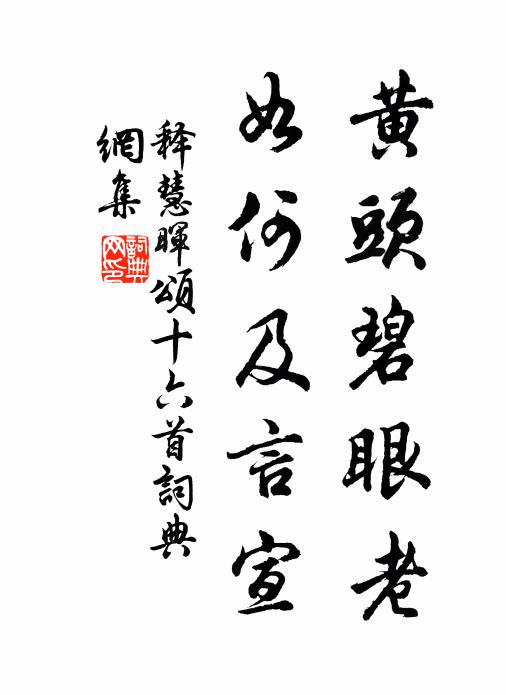 黄頭碧眼老
如何及言宣
释慧暉頌十六首詞典
網集
詞典
网印